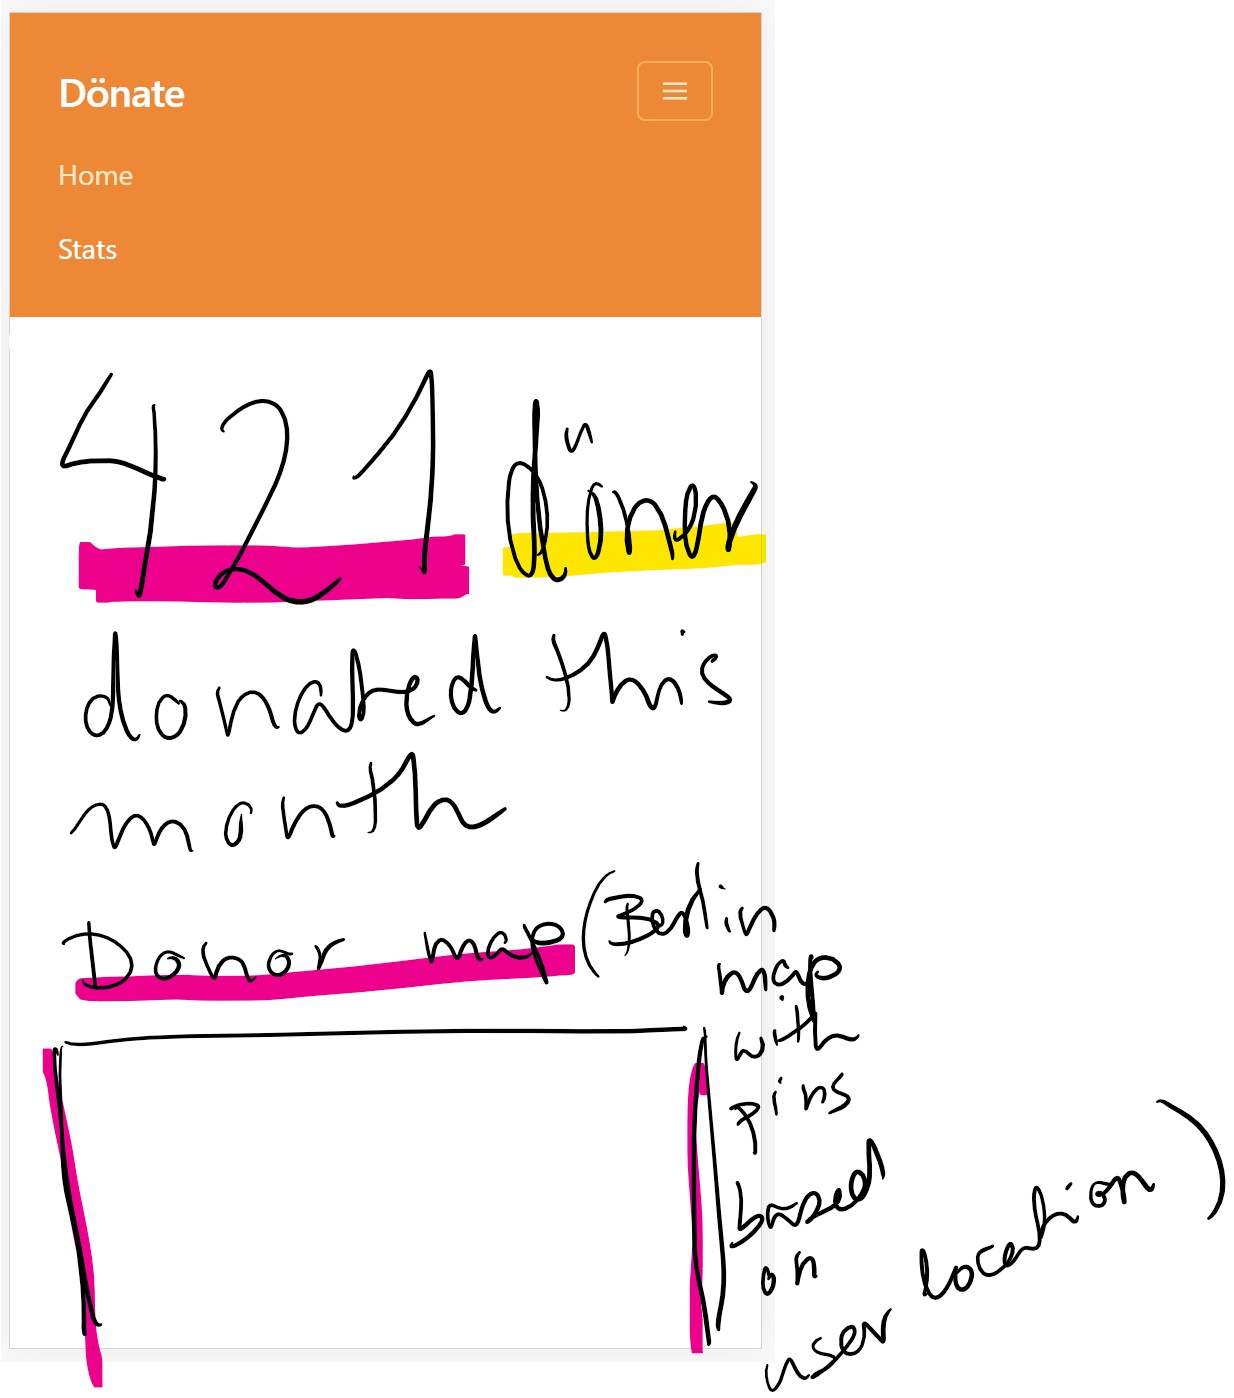 Dönate
Home
Stats
421 döner
donated this
month
Donor map (Berlin
map
with
pins
based
on
user location)